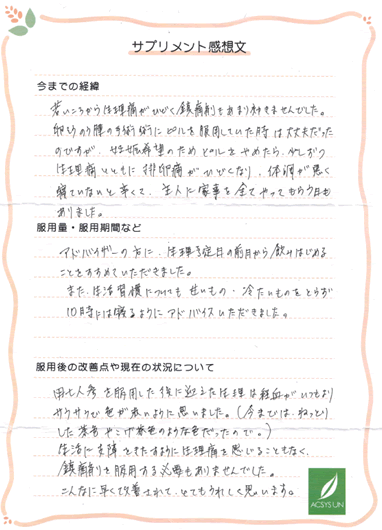 サプリメント感想文
今までの経緯
若いころから生理痛がひどく鎮痛剤もあまりききませんでした。
卵巣のう腫の手術術にピルを服用していた時は大丈夫だった
のですが、妊娠希望のためピルをやめたら、少しずつ
生理痛とともに排卵痛がひどくなり、体調が悪く
寝ていないと辛くて、主人に家事を全てやってもらう日も
ありました。
服用量・服用期間など
アドバイザーの方に、生理予定日の前月から飲みはじめる
ことをすすめていただきました。
また、生活習慣についても甘いもの・冷たいものをとらず
10時には寝るようにアドバイスいただきました。
服用後の改善点や現在の状況について
田七人参を服用した後に迎えた生理は経血がいつもより
サラサラで色が赤いように思いました。(今までは、ねっとり
した茶色やこげ茶色のような色だったので。)
生活に支障をきたすように生理痛を感じることもなく、
鎮痛剤を服用する必要もありませんでした。
こんなに早く改善されて、とてもうれしく思います。
ACSYSUN